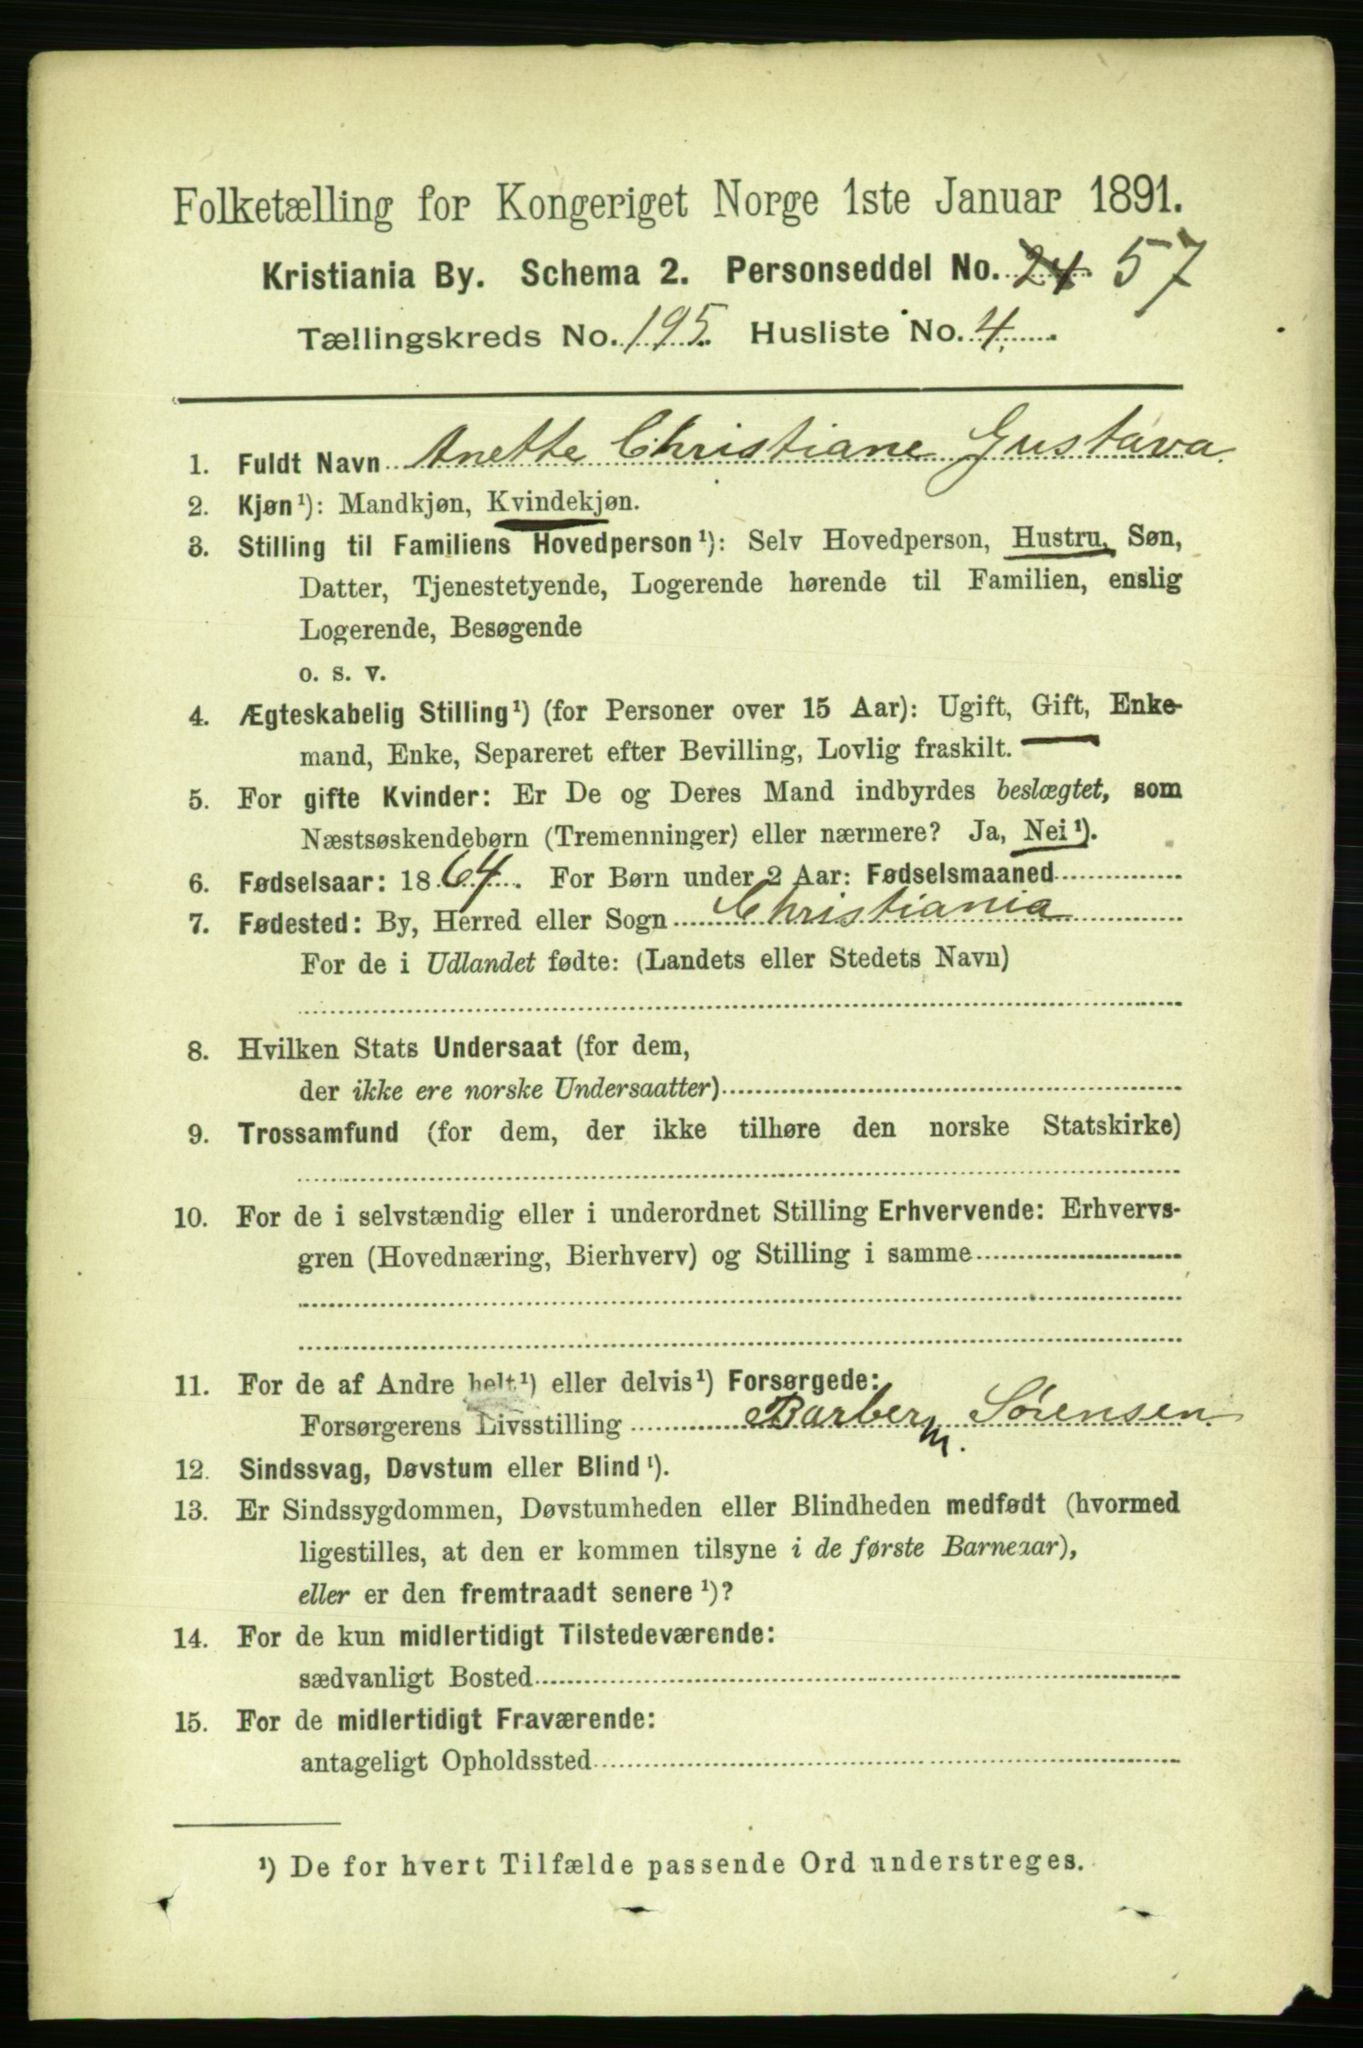 Folketælling for Kongeriget Norge 1ste Januar 1891.
Kristiania By. Schema 2. Personseddel No. 24 57
Tællingskreds No. 195. Husliste No. 4.
1. Fuldt Navn Anette Christiane Gustava
2. Kjøn¹): Mandkjøn, Kvindekjøn.
3. Stilling til Familiens Hovedperson¹): Selv Hovedperson, Hustru, Søn,
Datter, Tjenestetyende, Logerende hørende til Familien, enslig
Logerende, Besøgende
o. s. v.
4. Ægteskabelig Stilling¹) (for Personer over 15 Aar): Ugift, Gift, Enke-
mand, Enke, Separeret efter Bevilling, Lovlig fraskilt.
5. For gifte Kvinder: Er De og Deres Mand indbyrdes beslægtet, som
Næstsøskendebørn (Tremenninger) eller nærmere? Ja, Nei¹).
6. Fødselsaar: 1864. For Børn under 2 Aar: Fødselsmaaned
7. Fødested: By, Herred eller Sogn Christiania
For de i Udlandet fødte: (Landets eller Stedets Navn)
8. Hvilken Stats Undersaat (for dem,
der ikke ere norske Undersaatter)
9. Trossamfund (for dem, der ikke tilhøre den norske Statskirke)
10. For de i selvstændig eller i underordnet Stilling Erhvervende: Erhvervs-
gren (Hovednæring, Bierhverv) og Stilling i samme
11. For de af Andre helt¹) eller delvis¹) Forsørgede:
Forsørgerens Livsstilling Barber m. Sørensen
12. Sindssvag, Døvstum eller Blind¹).
13. Er Sindssygdommen, Døvstumheden eller Blindheden medfødt (hvormed
ligestilles, at den er kommen tilsyne i de første Barneaar),
eller er den fremtraadt senere¹)?
14. For de kun midlertidigt Tilstedeværende:
sædvanligt Bosted
15. For de midlertidigt Fraværende:
antageligt Opholdssted
¹) De for hvert Tilfælde passende Ord understreges.